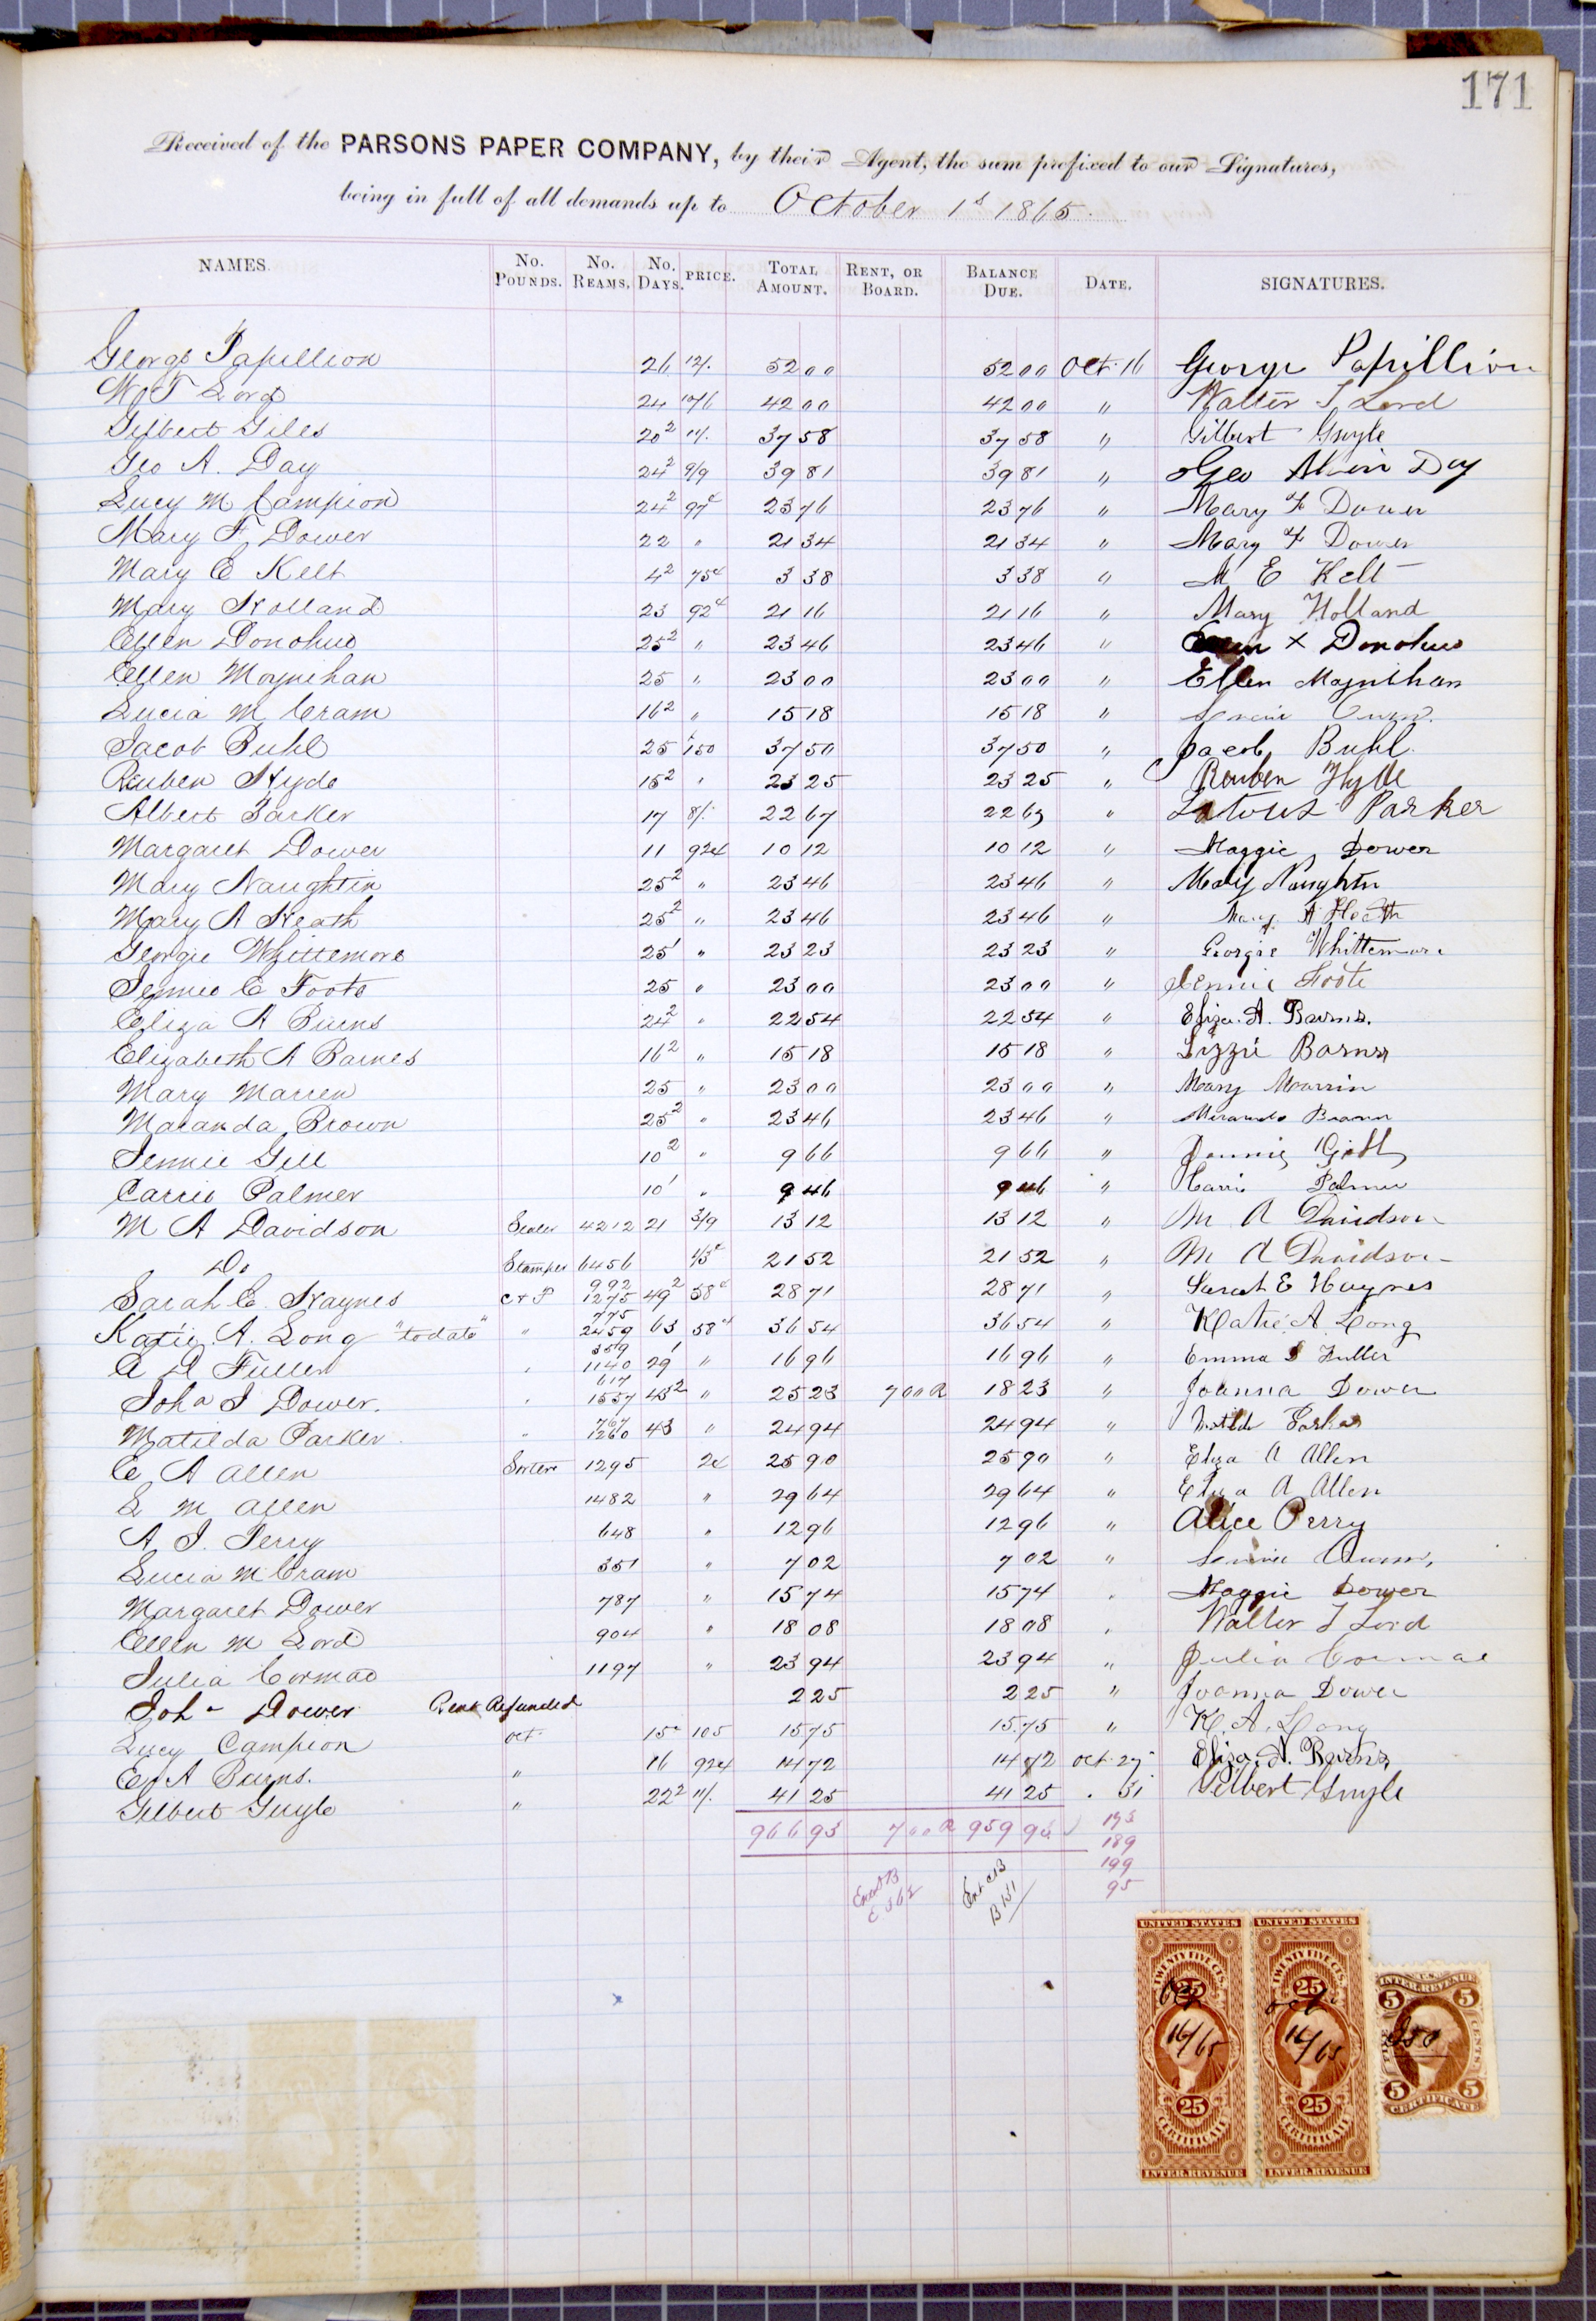 171
Received of the PARSONS PAPER COMPANY, by their Agent, the sum prefixed to our Signatures,
being in full of all demands up to October 1st 1865.
NAMES. No. POUNDS. No. REAMS. No. DAYS. PRICE. TOTAL AMOUNT. RENT, OR BOARD. BALANCE DUE. DATE. SIGNATURES.
George Papillion 26 12/. 52 00 52 00 Oct. 16 George Papillion
W T Lord 24 10/6 42 00 42 00 " Walter T Lord
Gilbert Giles 20 2 11/. 37 58 37 58 " Gilbert Guyle
Geo A. Day 24 2 9/9 39 81 39 81 " Geo Day
Lucy M Campion 24 2 97c 23 76 23 76 " Mary F Dower
Mary F Dower 22 " 21 34 21 34 " Mary F Dower
Mary E Kelt 4 2 75c 3 38 3 38 " M E Kelt
Mary Holland 23 92c 21 16 21 16 " Mary Holland
Ellen Donohue 25 2 " 23 46 23 46 " Ellen X Donohue
Ellen Moynihan 25 " 23 00 23 00 " Ellen Moynihan
Lucia M Cram 16 2 " 15 18 15 18 "
Jacob Buhl 25 1 50 37 50 37 50 " Jacob Buhl
Reuben Hyde 15 2 " 23 25 23 25 " Reuben Hyde
Albert Parker 17 8/. 22 67 22 67 " Parker
Margaret Dower 11 92c 10 12 10 12 " Maggie Dower
Mary Naughtin 25 2 " 23 46 23 46 " Mary Naughtin
Mary A Heath 25 2 " 23 46 23 46 " Mary A Heath
Georgie Whittemore 25 1 " 23 23 23 23 " Georgie Whittemore
Jennie C Foote 25 " 23 00 23 00 " Jennie Foote
Eliza A Burns 24 2 " 22 54 22 54 " Eliza. A. Burns.
Elizabeth A Barnes 16 2 " 15 18 15 18 " Lizzie Barnes
Mary Marren 25 " 23 00 23 00 " Mary Marrin
Maranda Brown 25 2 " 23 46 23 46 " Miranda Brown
Jennie Gill 10 2 " 9 66 9 66 " Jennie
Carrie Palmer 10 1 " 9 46 9 46 " Carrie Palmer
M A Davidson Sealer 4212 21 3/9 13 12 13 12 " M A Davidson
Do Stamper 6456 21 52 21 52 " M A Davidson
Sarah E. Haynes C & P 992 1275 49 2 58c 28 71 28 71 " Sarah E Haynes
Katie. A. Long "to date" " 775 2459 63 58c 36 54 36 54 " Katie. A. Long
E A Fuller " 359 1140 29 1 " 16 96 16 96 " Emma Fuller
Joha J Dower. " 617 1557 43 2 " 25 23 7 00 R 18 23 " Joanna Dower
Matilda Parker " 767 1260 43 " 24 94 24 94 " Parker
E A Allen Sorter 1295 2c 25 90 25 90 " Eliza A Allen
L M Allen 1482 " 29 64 29 64 " Eliza A Allen
A J. Perry 648 " 12 96 12 96 " Alice Perry
Lucia M Cram 351 " 7 02 7 02 "
Margaret Dower 787 " 15 74 15 74 " Maggie Dower
Ellen M Lord 904 " 18 08 18 08 " Walter T Lord
Julia Cormac 1197 " 23 94 23 94 " Julia Cormac
Joha Dower Rent Refunded 2 25 2 25 " Joanna Dower
Lucy Campion Oct. 15 105 15 75 15 75 " K. A. Long
E A Burns. " 16 92c 14 72 14 72 Oct. 27 Eliza. A. Burns
Gilbert Guyle " 22 2 11/. 41 25 41 25 " 31 Gilbert Guyle
966 93 7 00 R 959 93 193
189
199
95
Ent CB
B 151
UNITED STATES UNITED STATES
TWENTY FIVE CTS. TWENTY FIVE CTS.
25 25
Oct Oct
16/65 16/65
25 25
CERTIFICATE CERTIFICATE
INTER. REVENUE INTER. REVENUE
U.S.
INTER. REVENUE
5 5
FIVE CENTS
5 5
CERTIFICATE